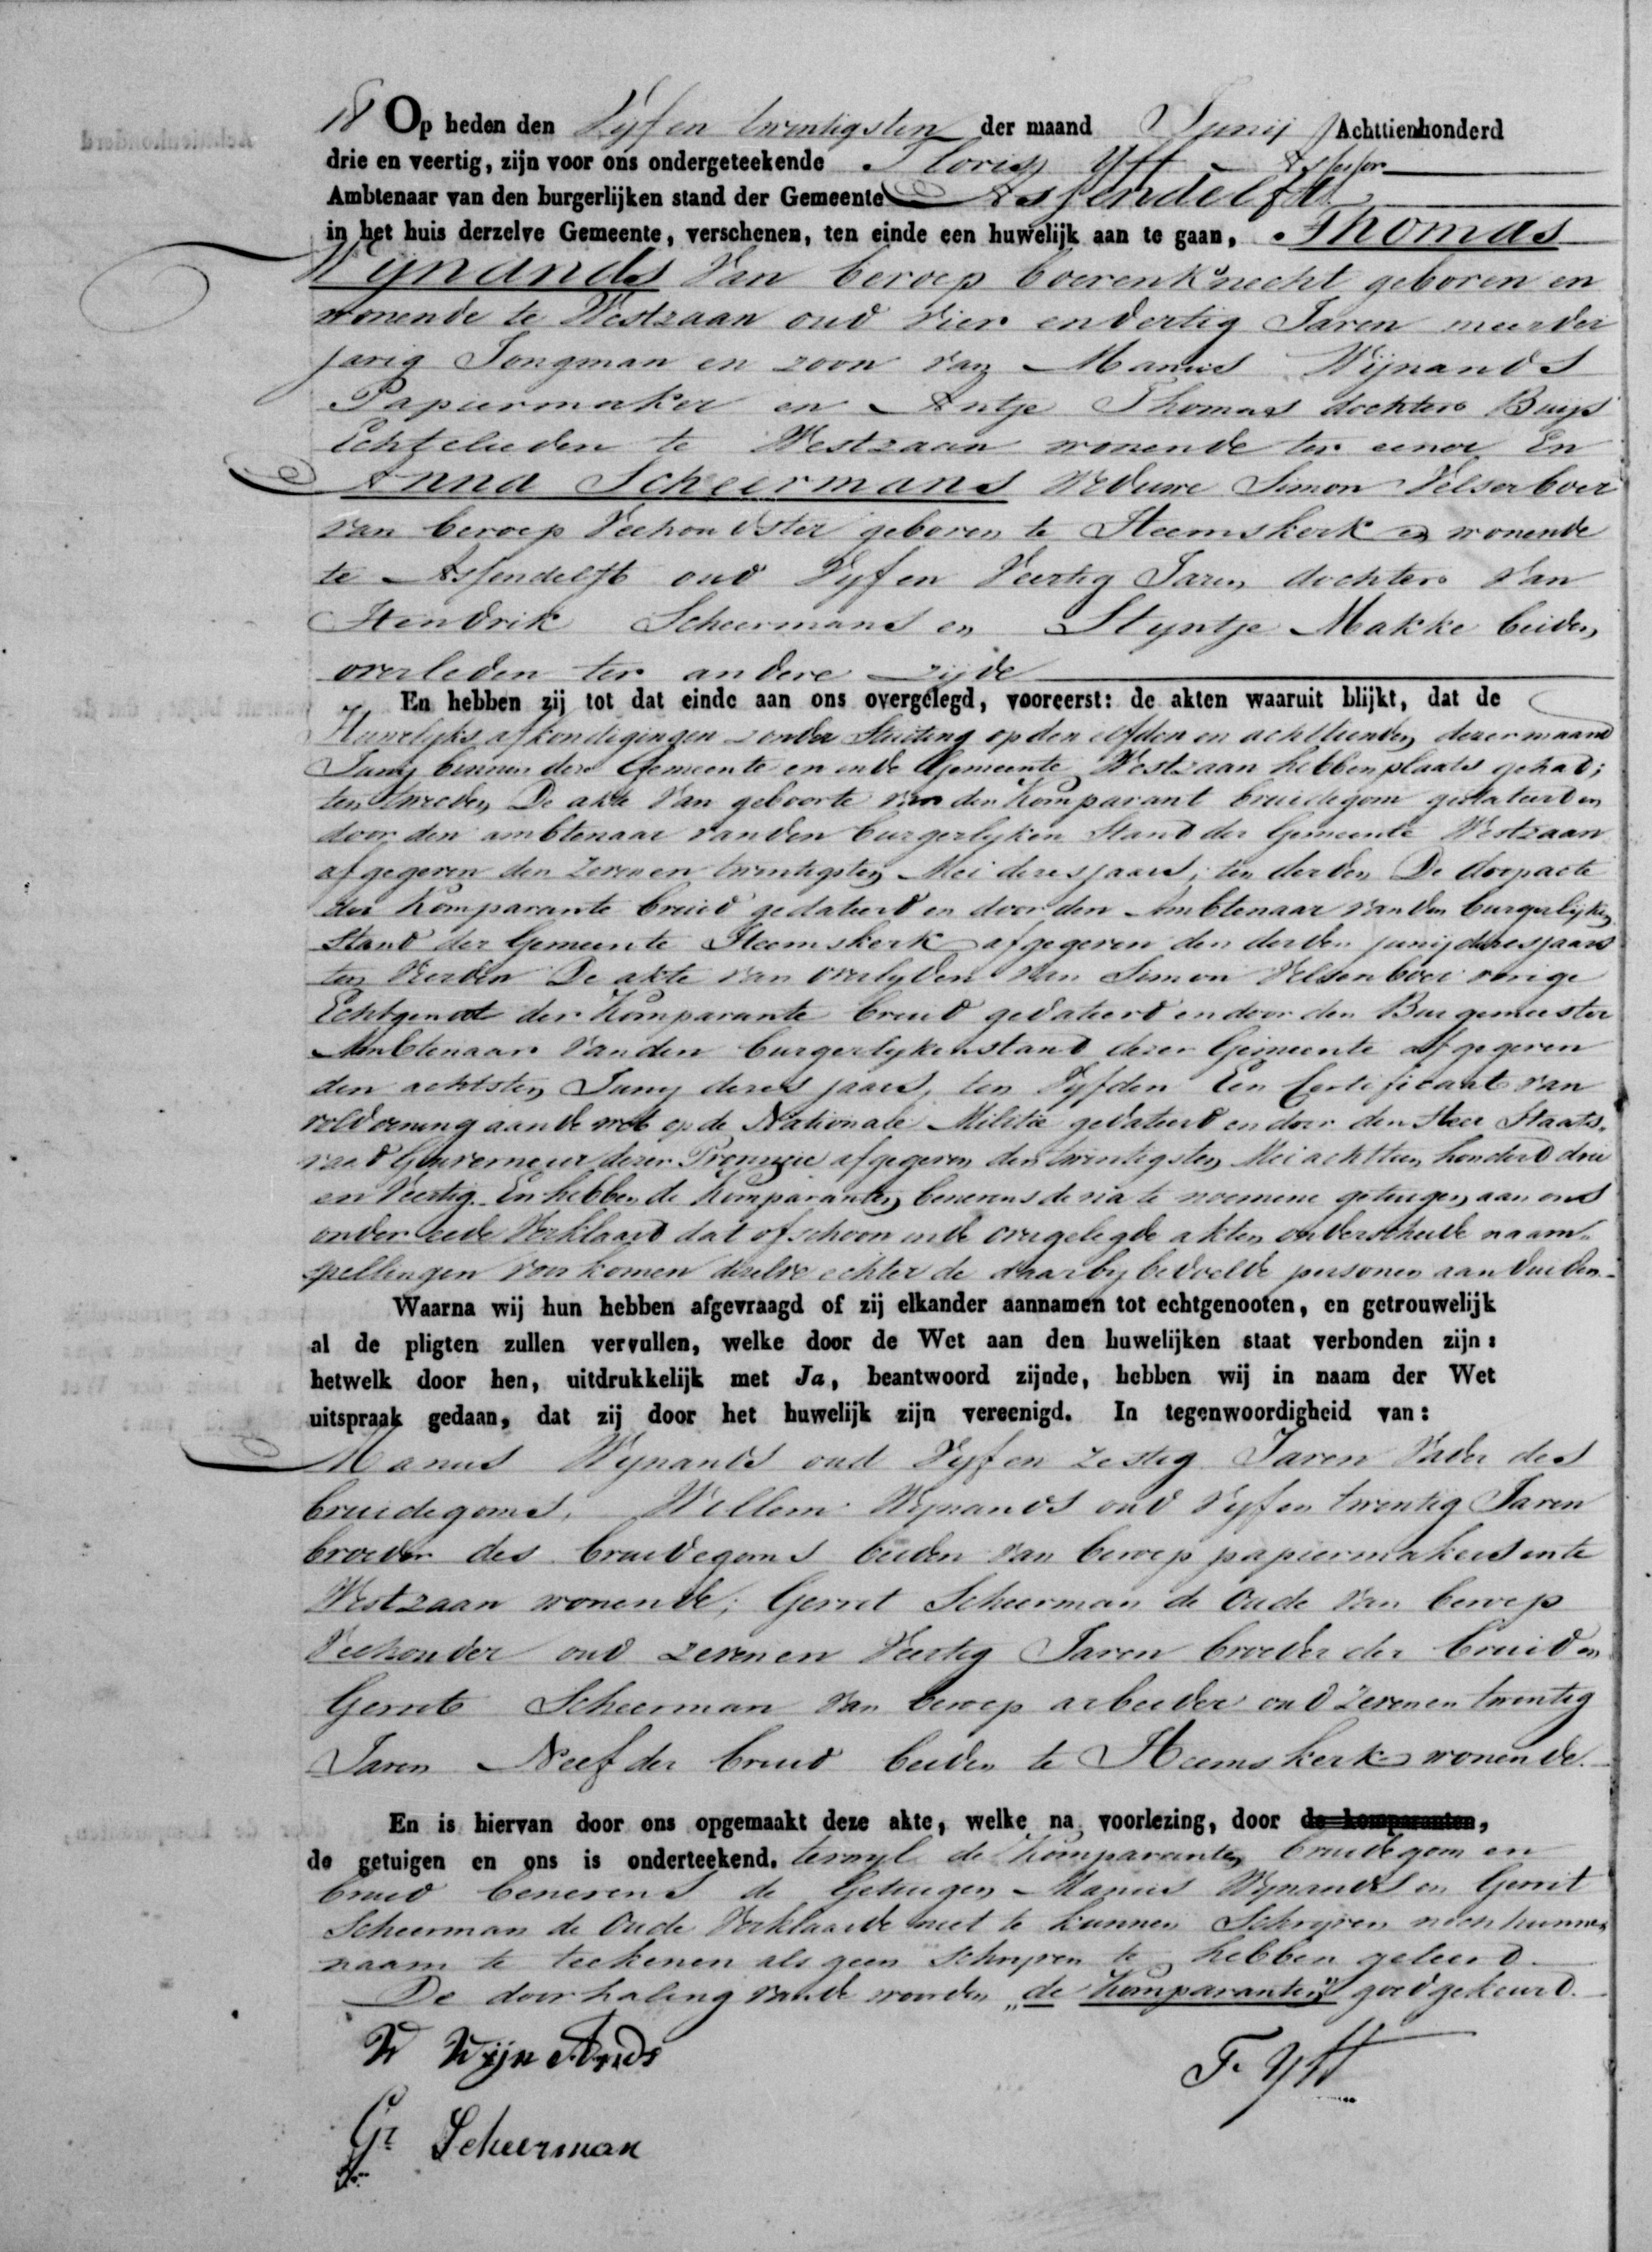 18 Op heden den Vyf en twintigsten der maand Junij Achttienhonderd
drie en veertig, zijn voor ons ondergeteekende Floris Yff Assessor
Ambtenaar van den burgerlijken stand der Gemeente Assendelft
in het huis derzelve Gemeente, verschenen, ten einde een huwelijk aan te gaan, Thomas
Wynands Van beroep boerenknecht geboren en
wonende te Westzaan oud vier en dertig Jaren meerder
jarig Jongman en zoon van Manus Wijnands
Papiermaker en Antje Thomas dochter Buijs
Echtelieden te Westzaan wonende ter eener En
Anna Scheermans Weduwe Simon Velserboer
van beroep Veehoudster geboren te Heemskerk en wonende
te Assendelft oud Vyf en Veertig Jaren dochter Van
Hendrik Scheermans en Styntje Makke beiden
overleden ter andere zijde
En hebben zij tot dat einde aan ons overgelegd, vooreerst: de akten waaruit blijkt, dat de
Huwelyks afkondigingen zonder Stuiting op den elfden en achttienden dezer maand
Juny binnen deze Gemeente en in de Gemeente Westzaan hebben plaats gehad;
ten tweeden De akte Van geboorte van den Komparant bruidegom gedateerd en
door den ambtenaar van den burgerlyken Stand der Gemeente Westzaan
afgegeven den zeven en twintigsten Mei dezes jaars; ten derden De doopacte
der Komparante bruid gedateerd en door den Ambtenaar van den burgerlyken
Stand der Gemeente Heemskerk afgegeven den derden junij dezes jaars
ten Vierden De akte van overlyden van Simon Velserboer vorige
Echtgenoot der Komparante bruid gedateerd en door den Burgemeester
Ambtenaar Van den burgerlyken stand dezer Gemeente afgegeven
den achtsten Juny dezes jaars, ten Vyfden Een Certificaat van
voldoening aan de wet op de Nationale Militie gedateerd en door den Heer Staats-
raad Gouverneur dezer Provincie afgegeven den twintigsten Mei achttien honderd drie
en Veertig. En hebben de Komparanten benevens de na te noemene getuigen aan ons
onder eede Verklaard dat ofschoon in de overgelegde akten onderscheide naam-
spellingen voorkomen dezelve echter de daarby bedoelde personen aanduiden.
Waarna wij hun hebben afgevraagd of zij elkander aannamen tot echtgenooten, en getrouwelijk
al de pligten zullen vervullen, welke door de Wet aan den huwelijken staat verbonden zijn:
hetwelk door hen, uitdrukkelijk met Ja, beantwoord zijnde, hebben wij in naam der Wet
uitspraak gedaan, dat zij door het huwelijk zijn vereenigd. In tegenwoordigheid van:
Manus Wynands oud Vyf en zestig Jaren Vader des
bruidegoms, Willem Wynands oud Vyf en twintig Jaren
broeder des bruidegoms beiden van beroep papiermakers en te
Westzaan wonende; Gerret Scheerman de Oude Van beroep
Veehouder oud zeven en Veertig Jaren broeder der bruid en
Gerrit Scheerman Van beroep arbeider oud zeven en twintig
Jaren Neef der bruid beiden te Heemskerk wonende.
En is hiervan door ons opgemaakt deze akte, welke na voorlezing, door de komparanten,
de getuigen en ons is onderteekend. terwyl de Komparanten bruidegom en
bruid benevens de Getuigen Manus Wynands en Gerrit
Scheerman de Oude Verklaarde niet te kunnen Schryven noch hunnen
naam te teekenen als geen schryven te hebben geleerd.
De doorhaling van de woorden „de Komparanten" goedgekeurd.
W WijnAnds
F. Yff
Gr Scheerman